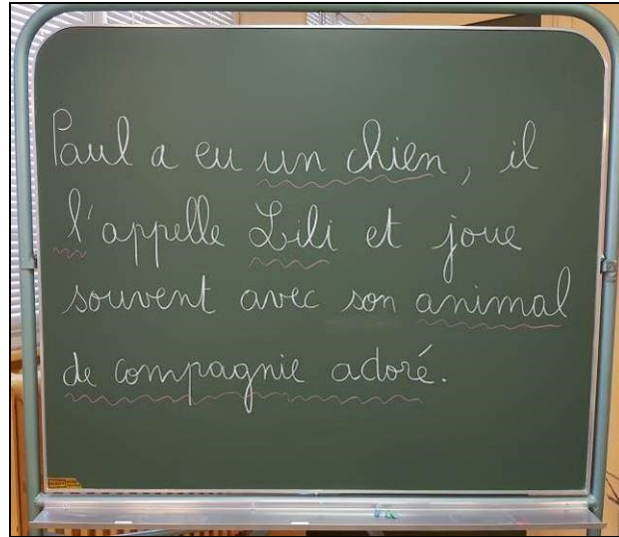 Paul a eu un chien, il
l'appelle Lili et joue
souvent avec son animal
de compagnie adoré.